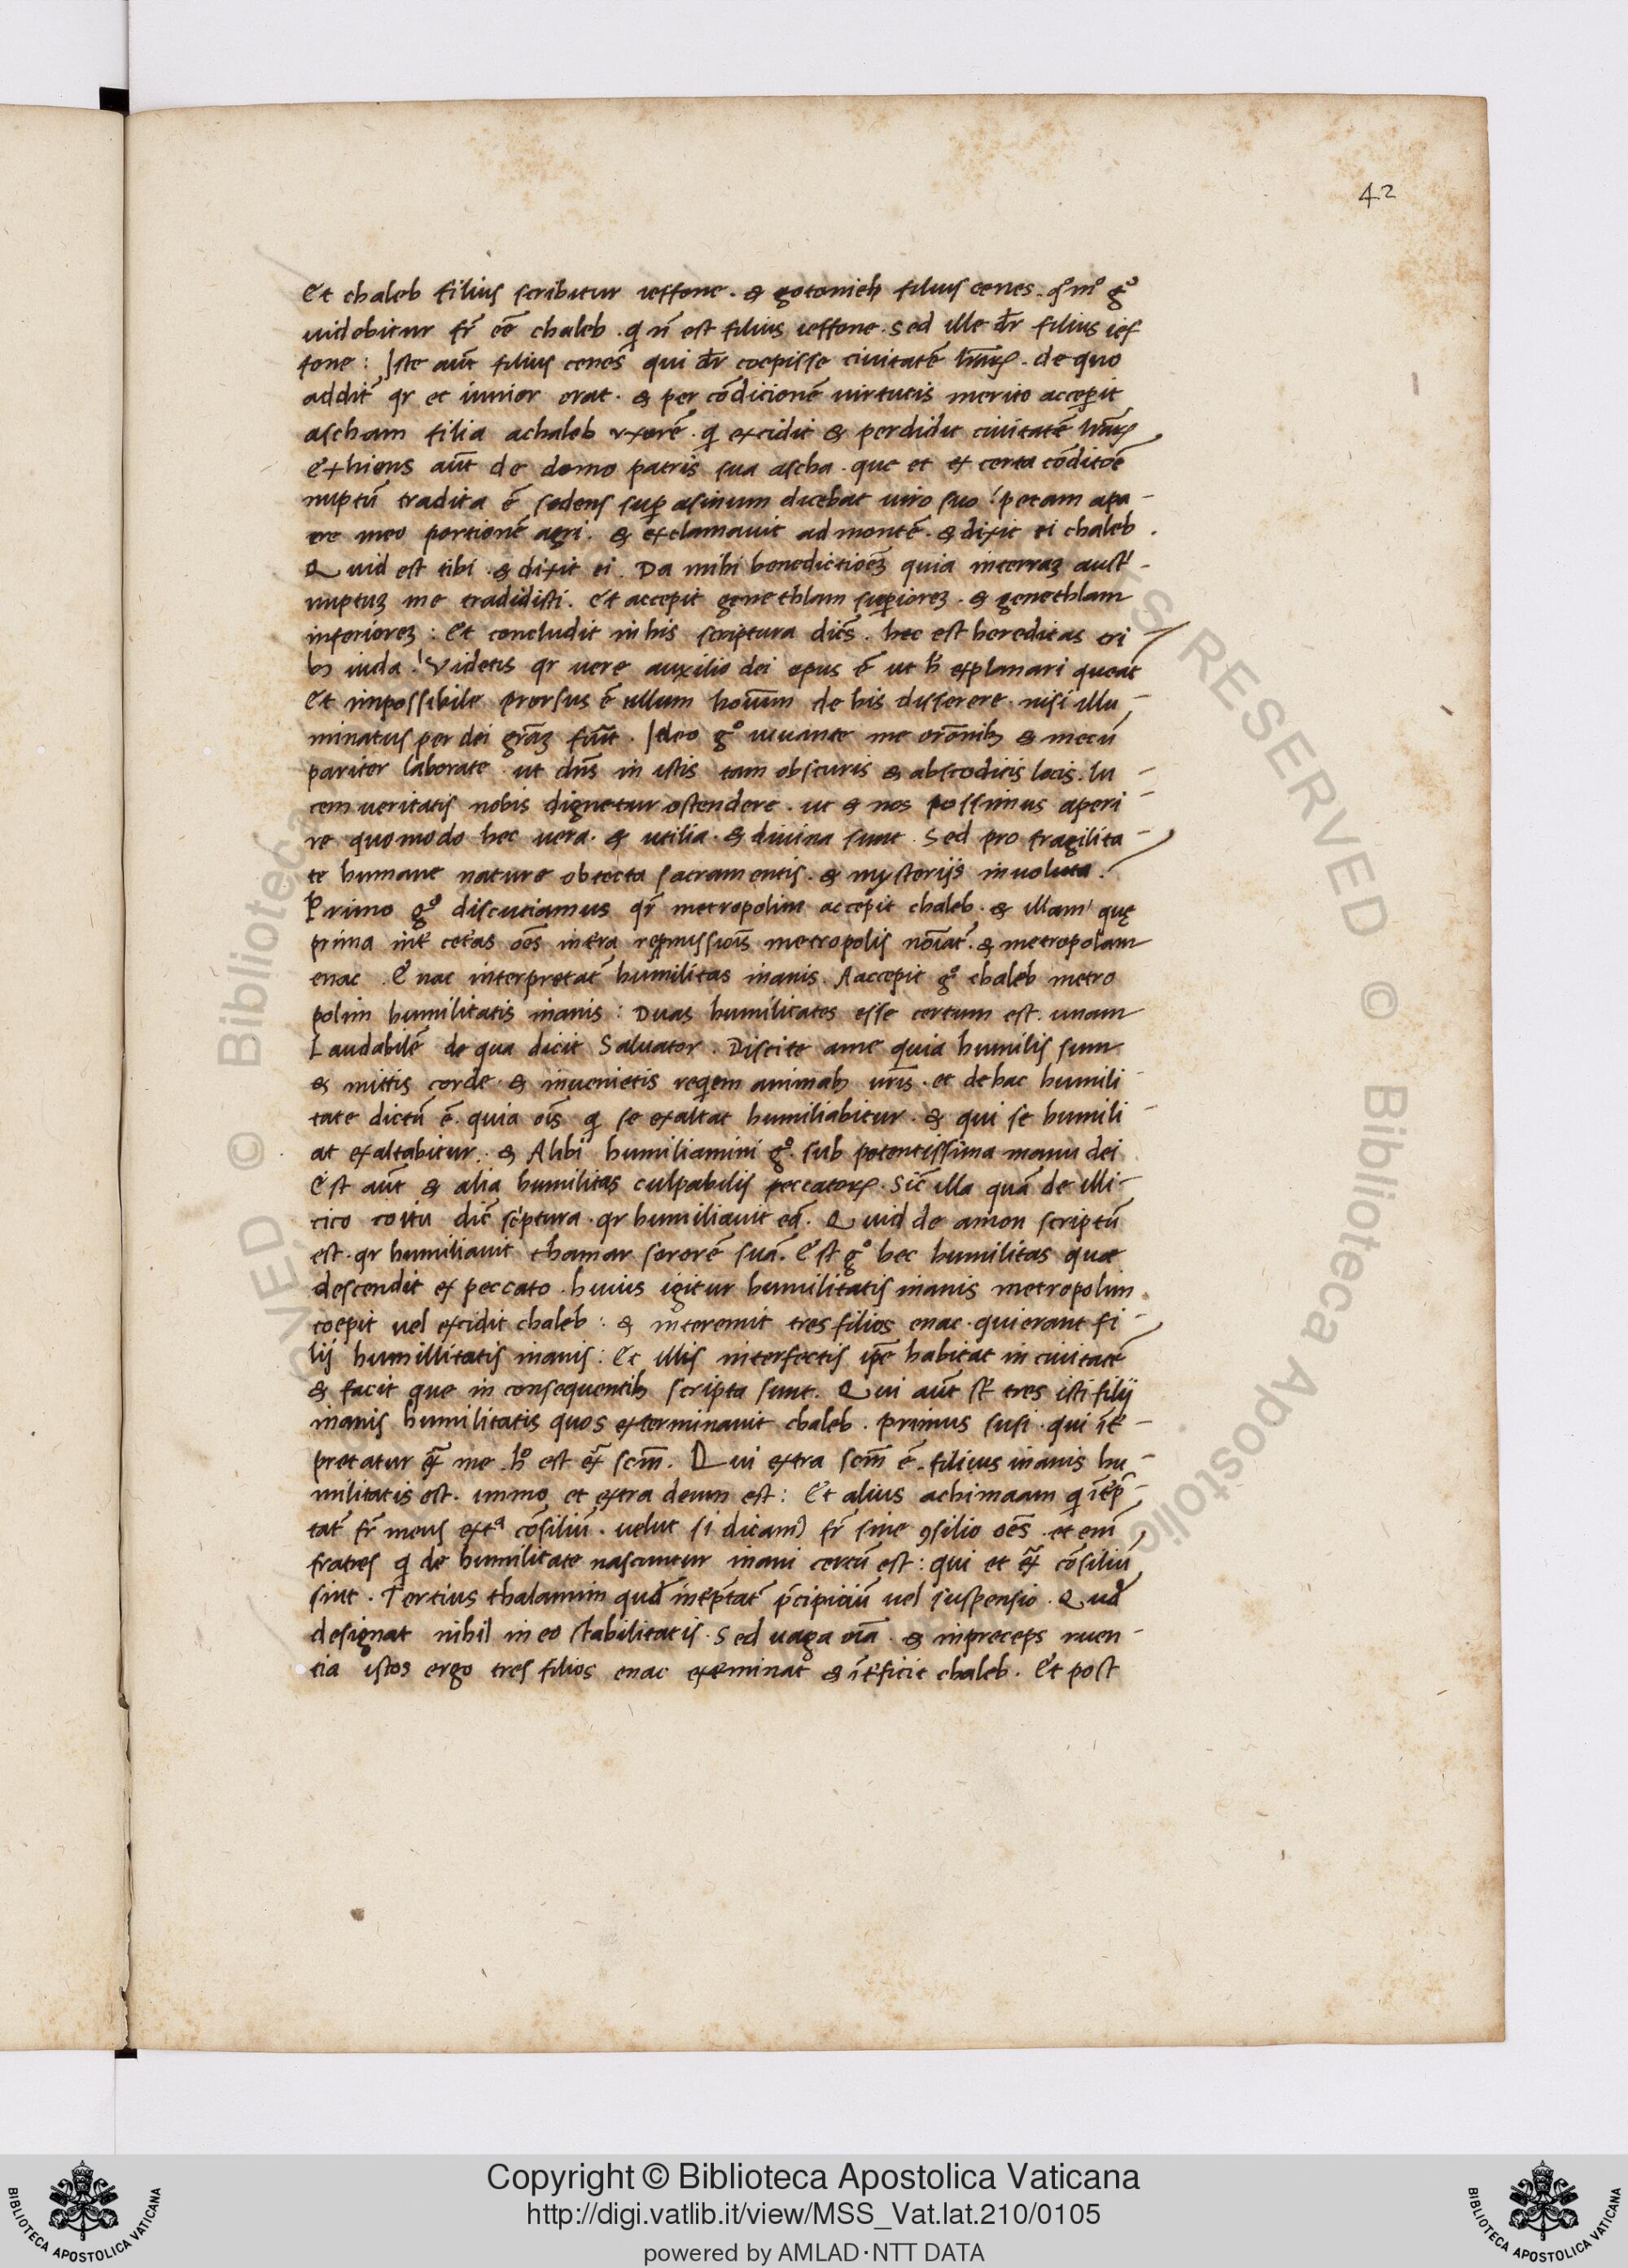 42
Et chaleb filius scribitur ieffone. & gotonieh filius cenes. qͦmͦ gͦ
uidebitur fr̄ eē chaleb. qi n̄ est filius ieffone. Sed ille dr̄ filius ief
fone: Iste aūt filius cenes qui dr̄ coepisse ciuitatē de quo
addit̄ qr et iunior erat. & per cōdicionē uirtutis merito acceꝑit
ascham filia achaleb uxorē. qi excidit & perdidit ciuitatē
Exhiens aūt de domo patris sua ascha. que et ex certa cōditōē
nuptū tradita ē sedens suꝑ asinum dicebat uiro suo! petam apa-
tre meo portionē agri. & exclamauit ad montē. & dixit ei chaleb.
Quid est tibi. & dixit ei. Da mihi benedictioēꝫ quia interraꝫ aust̄-
nuptuꝫ me tradidisti. Et accepit genethlam suꝑioreꝫ. & genethlam
inferioreꝫ: Et concludit in his scriptura dicēs. hec est hereditas tri
bꝫ iuda! Videtis qr uere auxilio dei opus ē ut h̄ explanari queāt
Et impossibile prorsus ē ullum hoīum de his disserere. nisi illu-
minatus per dei gr̄aꝫ fūit. Ideo gͦ iuuante me orōnibꝫ & mecū
pariter laborate. ut dn̄s in istis tam obscuris & abscoditis locis. lu-
cem ueritatis nobis dignetur ostendere. ut & nos possimus aperi-
re quomodo hec uera. & utilia. & diuina sunt. Sed pro fragilita-
te humane nature obtecta sacramentis. & mysterijs inuoluta.
Primo gͦ discutiamus qr̄ metropolim accepit chaleb. & illam quę
prima int̄ cet̄as oēs intra repmissiōis metropolis noīat̄. & metropolam
enac. Enac interpretat̄ humilitas inanis. Aaccepit gͦ chaleb metro
polim humilitatis inanis: Duas humilitates esse certum est. unam
Laudabilē de qua dicit Saluator. Discite ame quia humilis sum
& mittis corde. & inuenietis reqiem animabꝫ ur̄is. et de hac humili-
tate dictū ē. quia oīs qi se exaltat humiliabitur. & qui se humili-
at exaltabitur. & Alibi humiliamini gͦ. sub potentissima manu dei
Est aūt & alia humilitas culpabilis peccatoꝝ. Sic̄ illa quā de illi-
cito coitu dic̄ sc̄ptura. qr humiliauit eā. Quid de amon scriptū
est. qr humiliauit thamar sororē suā. Est gͦ hec humilitas quæ
descendit ex peccato. huius igitur humilitatis inanis metropolim
coepit uel excidit chaleb: & interemit tres filios enac. qui erant fi-
lij humillitatis inanis: Et illis interfectis ip̄e habitat in ciuitatē
& facit que in consequentibꝫ scripta sunt. Qui aūt st̄ tres isti filij
inanis humilitatis quos exterminauit chaleb. primus susi. qui īt̄-
pretatur ext̄ me. hͦ est ext̄ scm̄. Qui extra scm̄ ē. filius inanis hu-
militatis est. immo et extra deum est: Et alius achimaam qi īt̄p̄-
tat̄ fr̄ meus extᵃ cōsiliū. uelut si dicam fr̄ sine ꝯsilio oēs. et enī
fratres qi de humilitate nascuntur inani certū est: qui et ext̄ cōsiliū
sint. Tertius thalamim qud̄ int̄p̄tat̄ p̄cipiciū uel suspensio. Qud̄
designat nihil in eo stabilitatis. Sed uaga oīa. & inpreceps ruen-
tia istos ergo tres filios enac ext̄minat & īt̄ficit chaleb. Et post
Copyright © Biblioteca Apostolica Vaticana
http://digi.vatlib.it/view/MSS_Vat.lat.210/0105
powered by AMLAD·NTT DATA